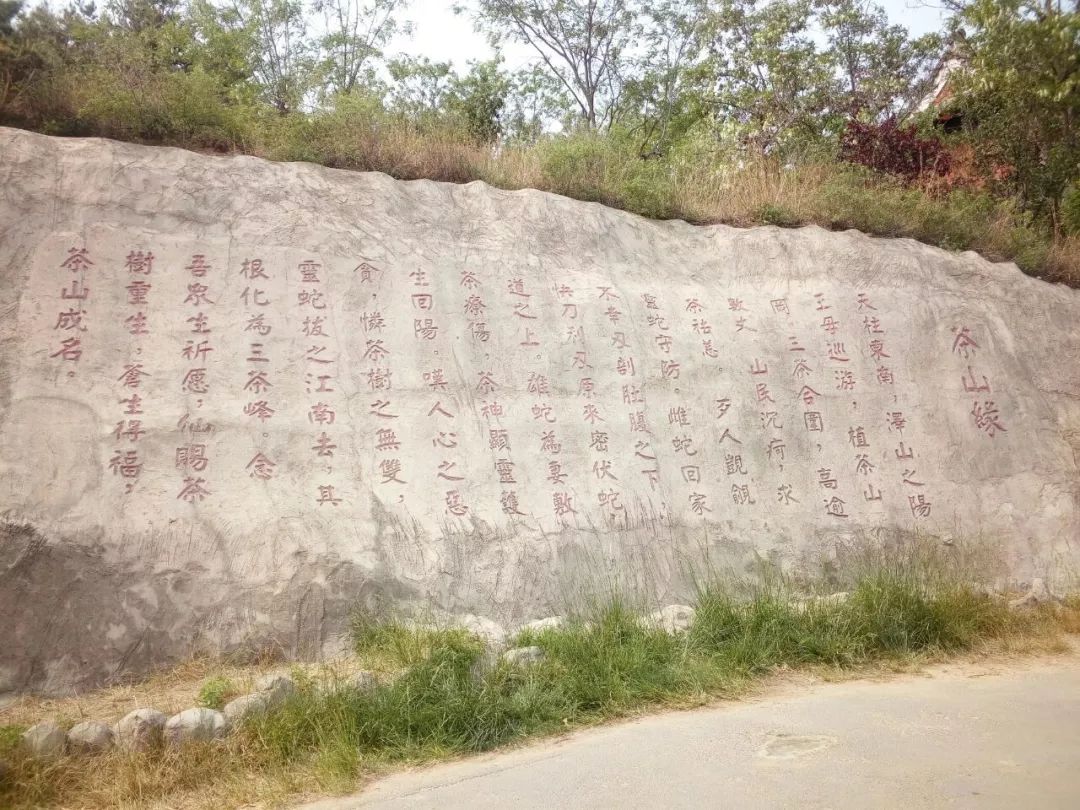 茶山緣
天柱東南，澤山之陽
王母巡游，植茶山
岡，三茶合圍，高逾
數丈。山民沉疴，求
茶祐恙。歹人覬覦
靈蛇守防。雌蛇回家
不幸刃剖肚腹之下
快刀利刃原來密伏蛇
道之上。雄蛇為妻敷
茶療傷，茶神顯靈護
生回陽。嘆人心之惡
貪，憐茶樹之無雙，
靈蛇拔之江南去，其
根化為三茶峰。念
吾衆生祈愿，仙賜茶
樹重生，蒼生得福，
茶山成名。